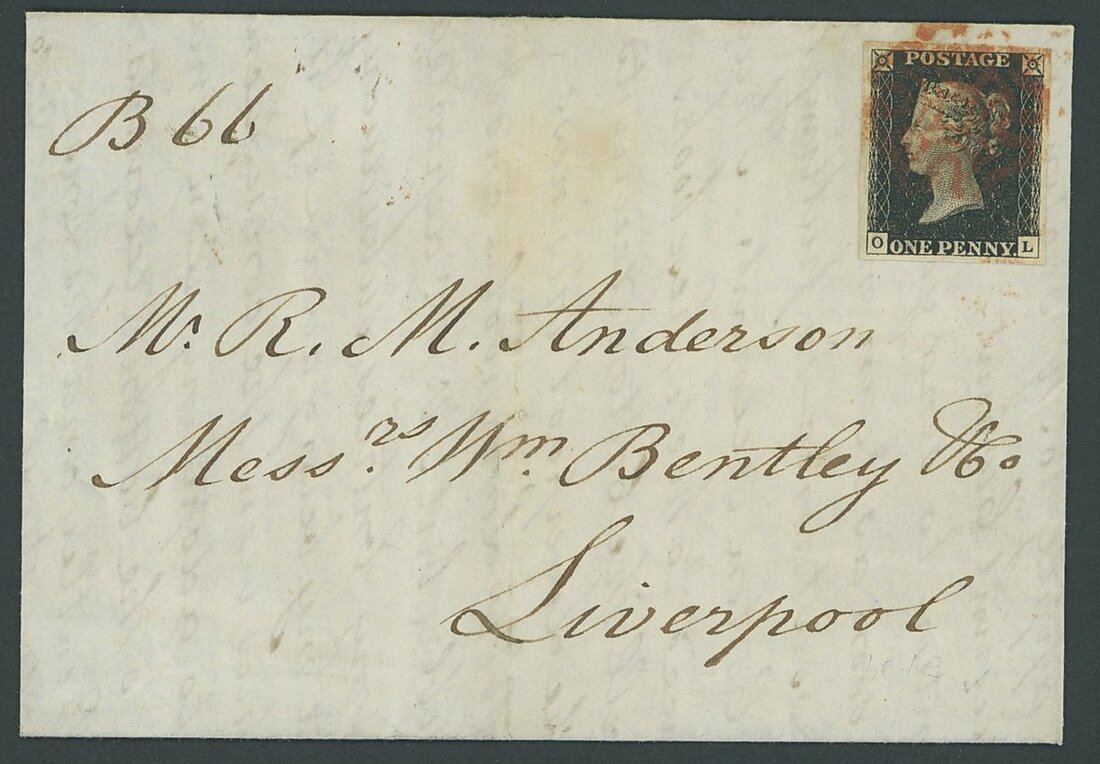 B 66
POSTAGE
O ONE PENNY. L
Mr. R. M. Anderson
Messrs. Wm Bentley & Co
Liverpool